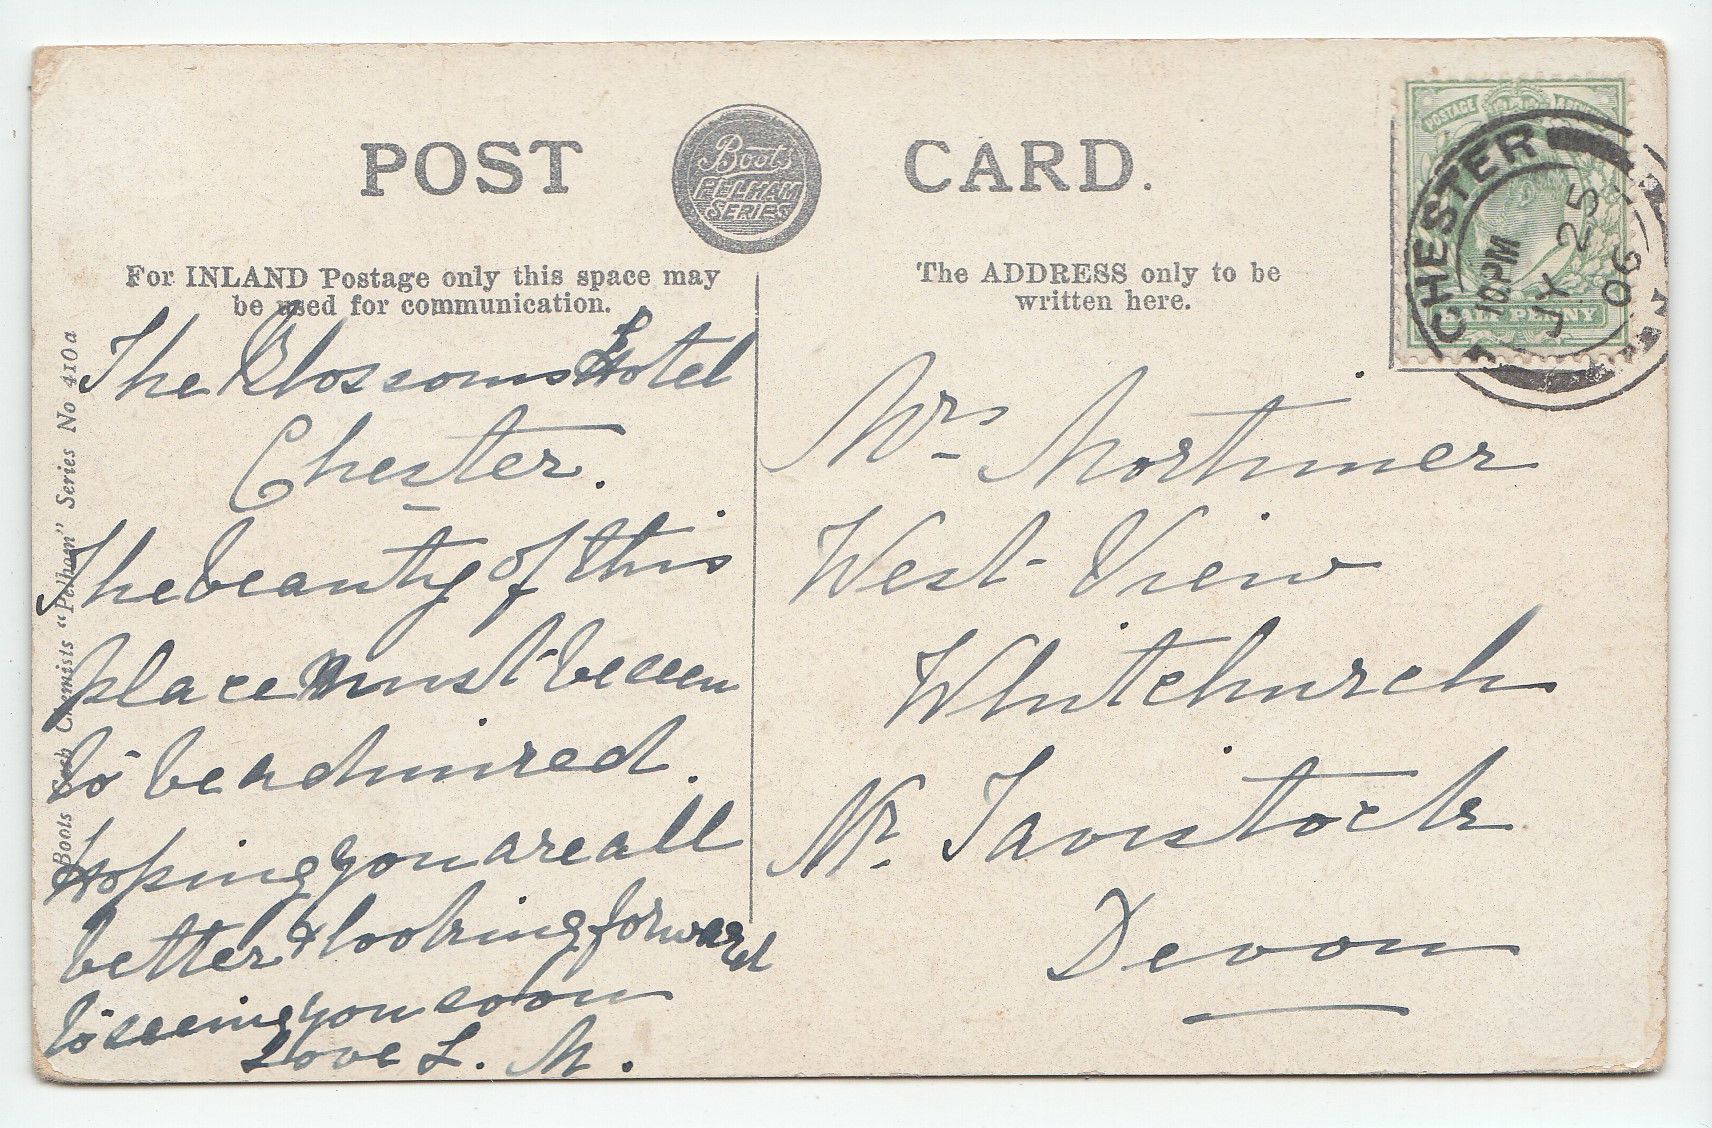 POST CARD.
Boots
PELHAM
SERIES
For INLAND Postage only this space may
be used for communication.
The ADDRESS only to be
written here.
POSTAGE
HALF PENNY
CHESTER
10 PM
JY 25
06
Boots Cash Chemists "Pelham" Series No 410a
The Blossoms Hotel
Chester.
The beauty of this
place must be seen
to be admired.
Hoping you are all
better & looking forward
to seeing you soon
Love L. M.
Mrs Mortimer
West View
Whitchurch
Nr. Tavistock
Devon